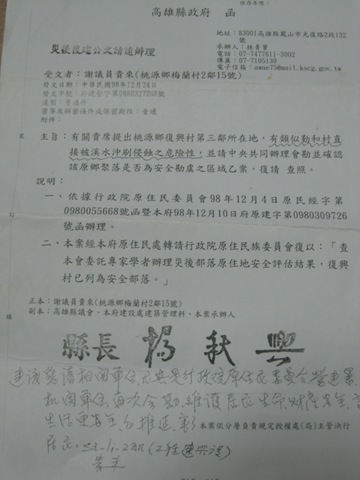 高雄縣政府 函
地址：83001高雄縣鳳山市光復路2段132號
承辦人：林青菁
電話：07-7477611-3002
傳真：07-7105130
災後復建公文請速辦理
受文者：謝議員貴來(桃源鄉梅蘭村2鄰15號)
發文日期：中華民國98年12月24日
速別：普通件
密等及解密條件或保密期限：普通
附件：
主旨：有關貴席提出桃源鄉復興村第三鄰所在地，有類似勤和村直
接被溪水沖刷侵蝕之危險性，並請中央共同辦理會勘並確認
該原鄉聚落是否為安全勘虞之區域乙案，復請 查照。
說明：
一、依據行政院原住民委員會98年12月4日原民經字第
0980055668號函暨本府98年12月10日府原建字第0980309726
號函辦理。
二、本案經本府原住民處轉請行政院原住民族委員會復以：「查
本會委託專家學者辦理災後部落原住地安全評估結果，復興
村已列為安全部落。」
正本：謝議員貴來(桃源鄉梅蘭村2鄰15號)
副本：高雄縣議會、本府建設處建築管理科、本案承辦人
縣長 楊秋興
本案依分層負責規定授權處(局)主管決行